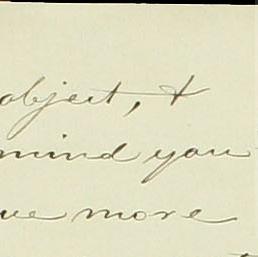 object, &
mind you
ve more